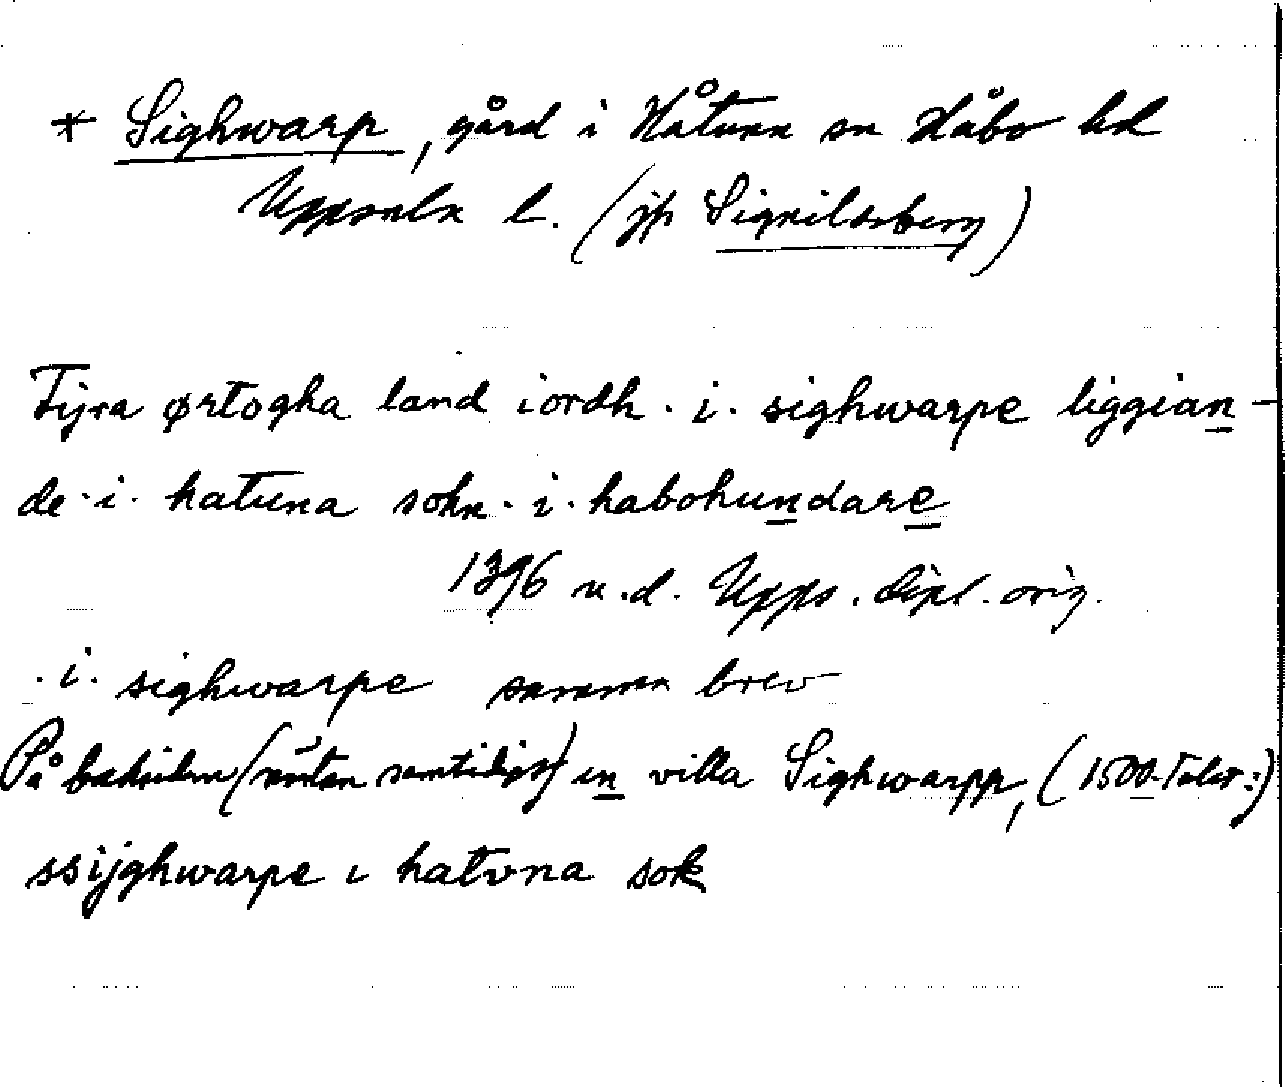 * Sighwarp, gård i Håtuna sn Håbo hd
Uppsala l. (jfr Signildsberg)
Fijra ørtogha land iordh · i · sighwarpe liggian-
de · i · hatuna sokn · i · habohundare
1396 u.d. Upps. dipl. orig.
· i · sighwarpe samma brev
På baksidan (nästan samtidigt) en villa Sighwarpp, (1500-talet:)
ssijghwarpe i hatvna sok